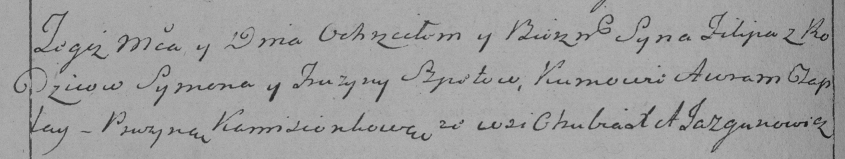 Tegiż Mca y Dnia Ochrzciłem y Bierzm Syna Filipa z Ro
Dzicow Symona y Fruzyny Szpołow, Kumowie Awram Czap
lay - Pruzyna Kamisionkowa ze wsi Chubiast A Jazgunowicz